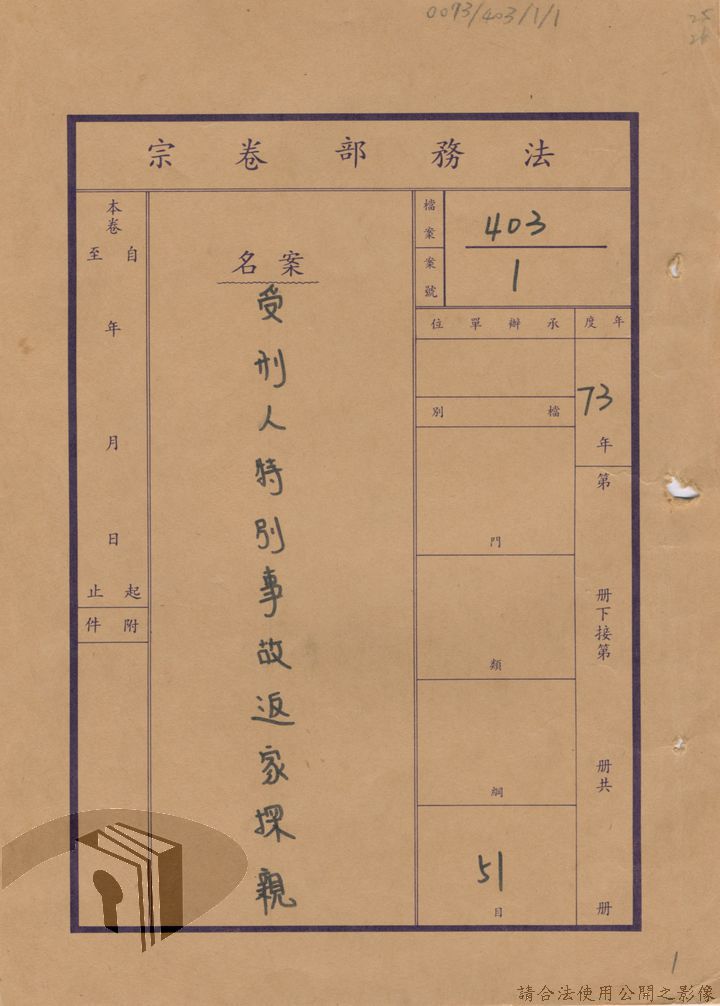 0073/403/1/1
25
26
法務部卷宗
檔案
案號
403
1
年度
承辦單位
73
年
第
冊下接第
冊共
冊
檔別
門
類
綱
51
目
案名
受刑人特別事故返家探親
本卷
自 至
年
月
日
起 止
附件
1
請合法使用公開之影像